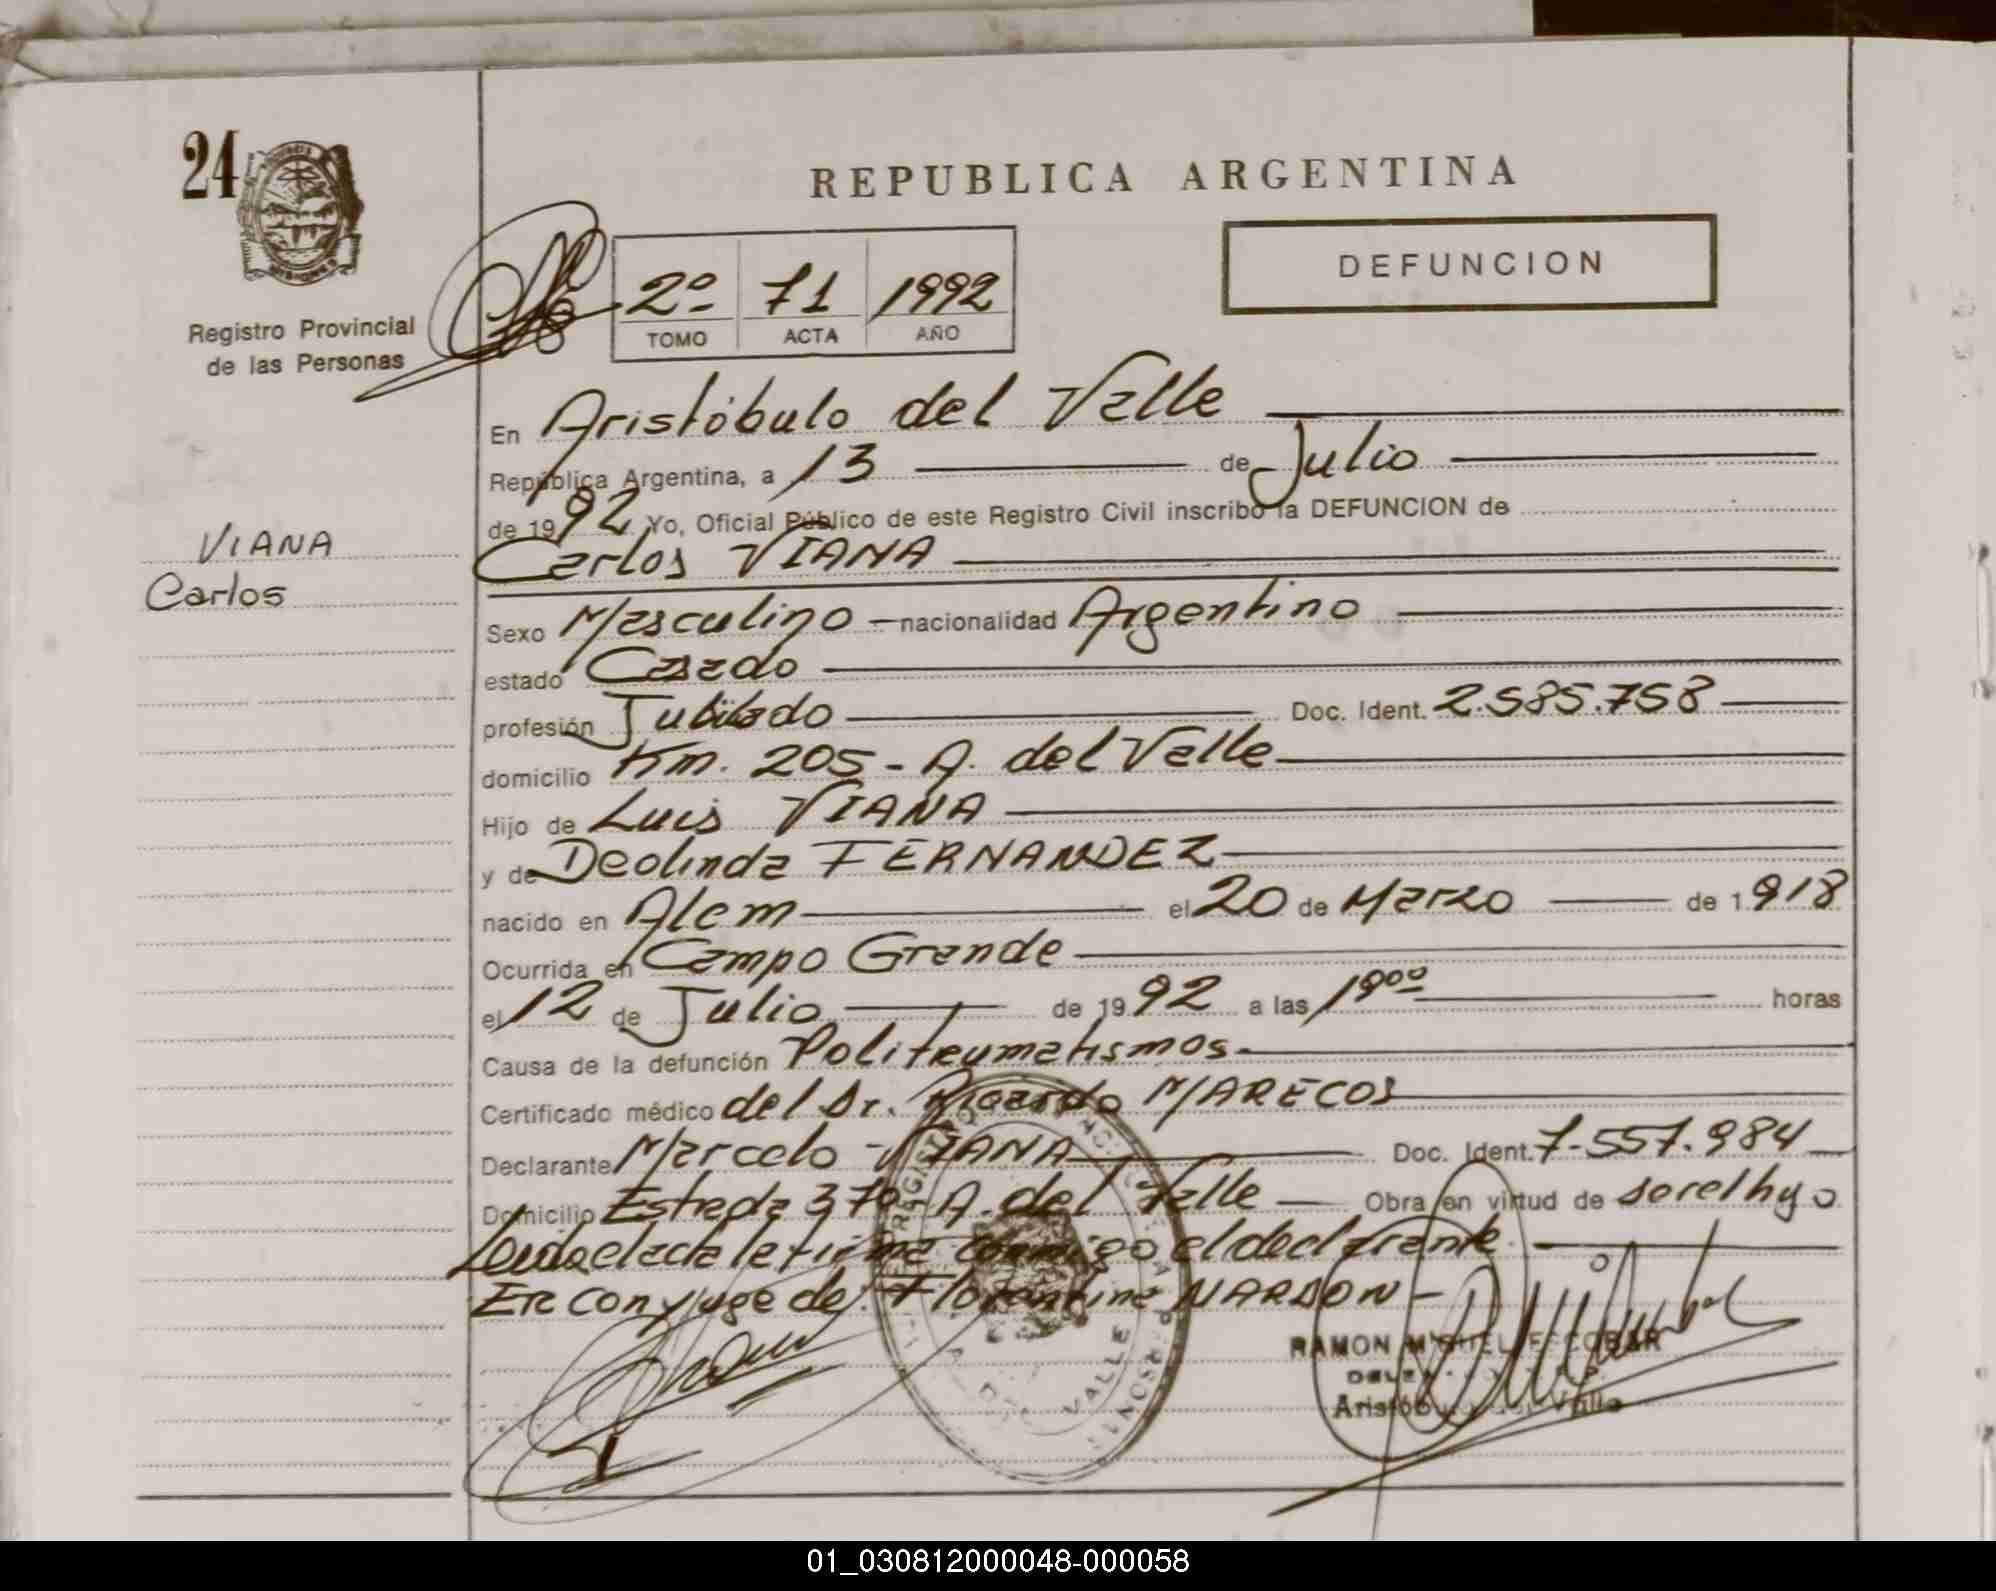 24
REPUBLICA ARGENTINA
DEFUNCION
2º 71 1992
TOMO ACTA AÑO
Registro Provincial
de las Personas
En Aristóbulo del Valle
República Argentina, a 13 de Julio
de 1992 Yo, Oficial Público de este Registro Civil inscribo la DEFUNCION de
VIANA
Carlos
Carlos VIANA
Sexo Masculino - nacionalidad Argentino
estado Casado
profesión Jubilado Doc. Ident. 2.585.758
domicilio Km. 205 - A. del Valle
Hijo de Luis VIANA
y de Deolinda FERNANDEZ
nacido en Alem el 20 de Marzo de 1.918
Ocurrida en Campo Grande
el 12 de Julio de 1992 a las 19ºº horas
Causa de la defunción Politraumatismos
Certificado médico del Dr. Ricardo MARECOS
Declarante Marcelo VIANA Doc. Ident. 7.557.984
Domicilio Estrada 370 - A. del Valle Obra en virtud de ser el hijo
Leida el acta la firma conmigo el declarante
Era conyuge de: Florentina NARDON -
RAMON MIGUEL ESCOBAR
Aristóbulo del Valle
01_030812000048-000058